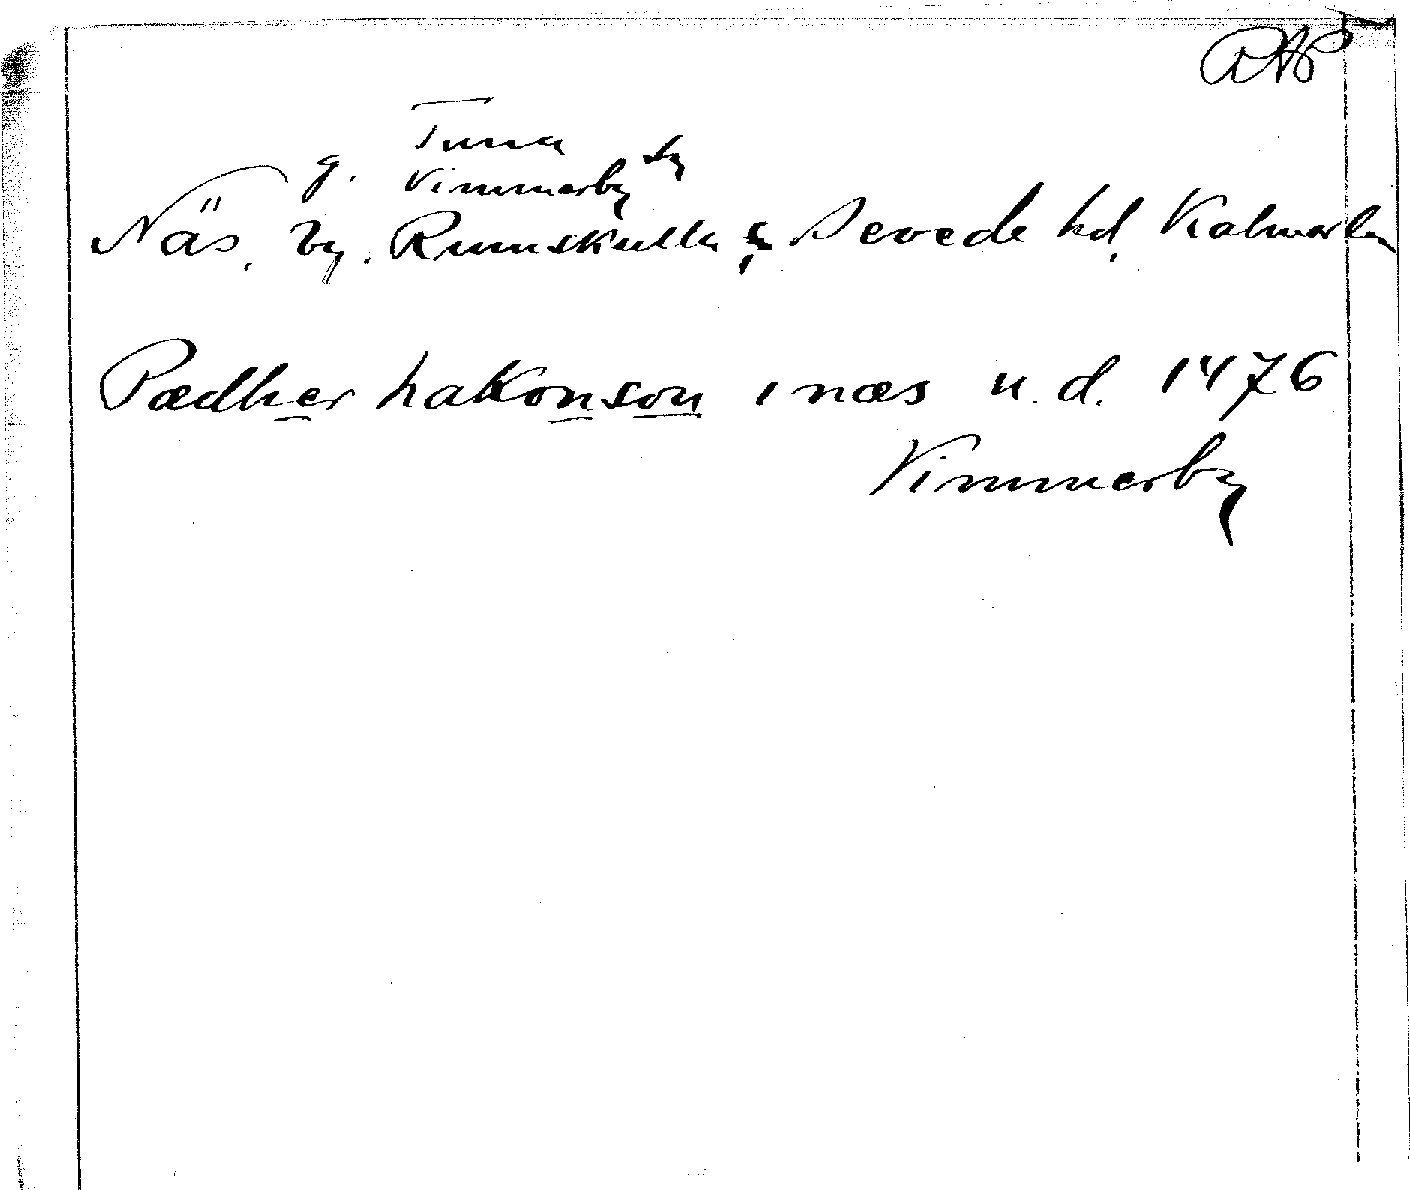 RAP
Tuna
g. Vimmerby sn
Näs, by. Rumskulla sn, Sevede hd, Kalmar län
Pædher hakonson i næs u. d. 1476
Vimmerby